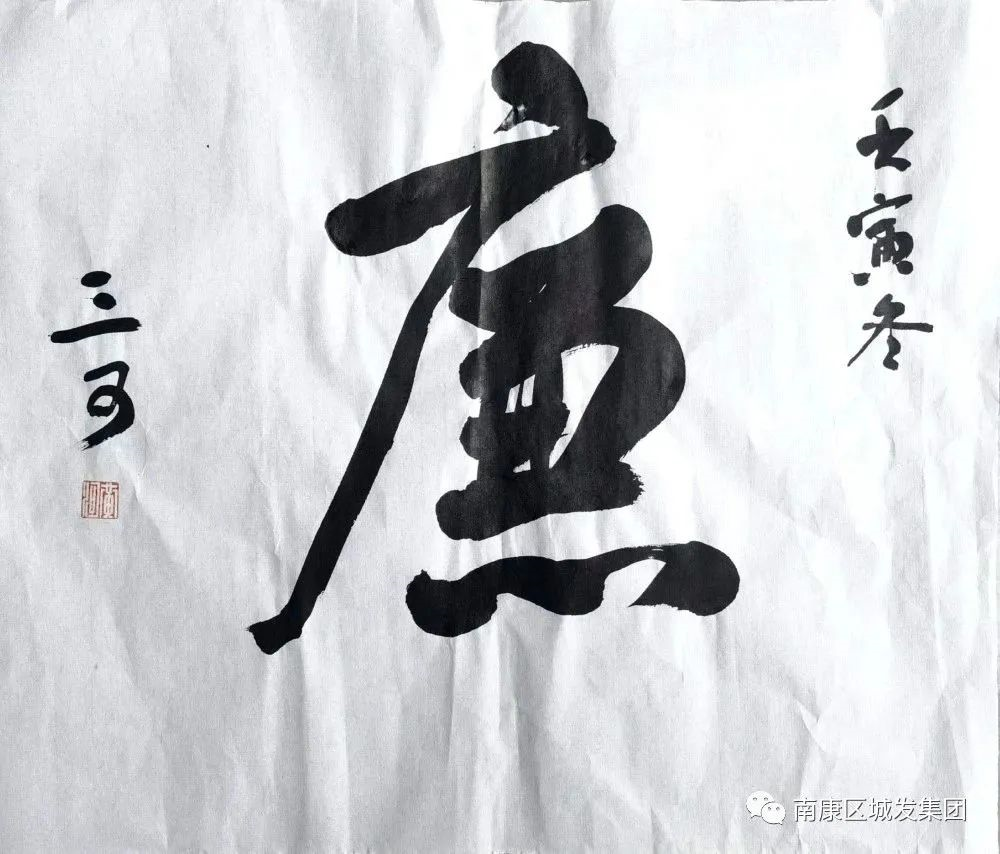 壬寅冬
廉
三可
南康区城发集团